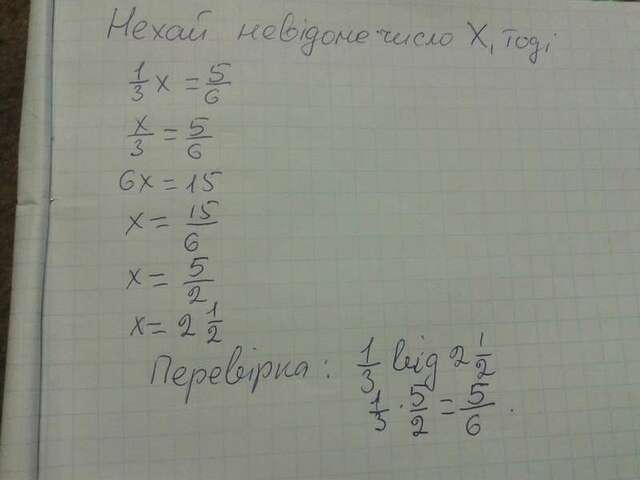 Нехай невідоме число X, тоді
1/3 x = 5/6
x/3 = 5/6
6x = 15
x = 15/6
x = 5/2
x = 2 1/2
Перевірка: 1/3 від 2 1/2
1/3 · 5/2 = 5/6.